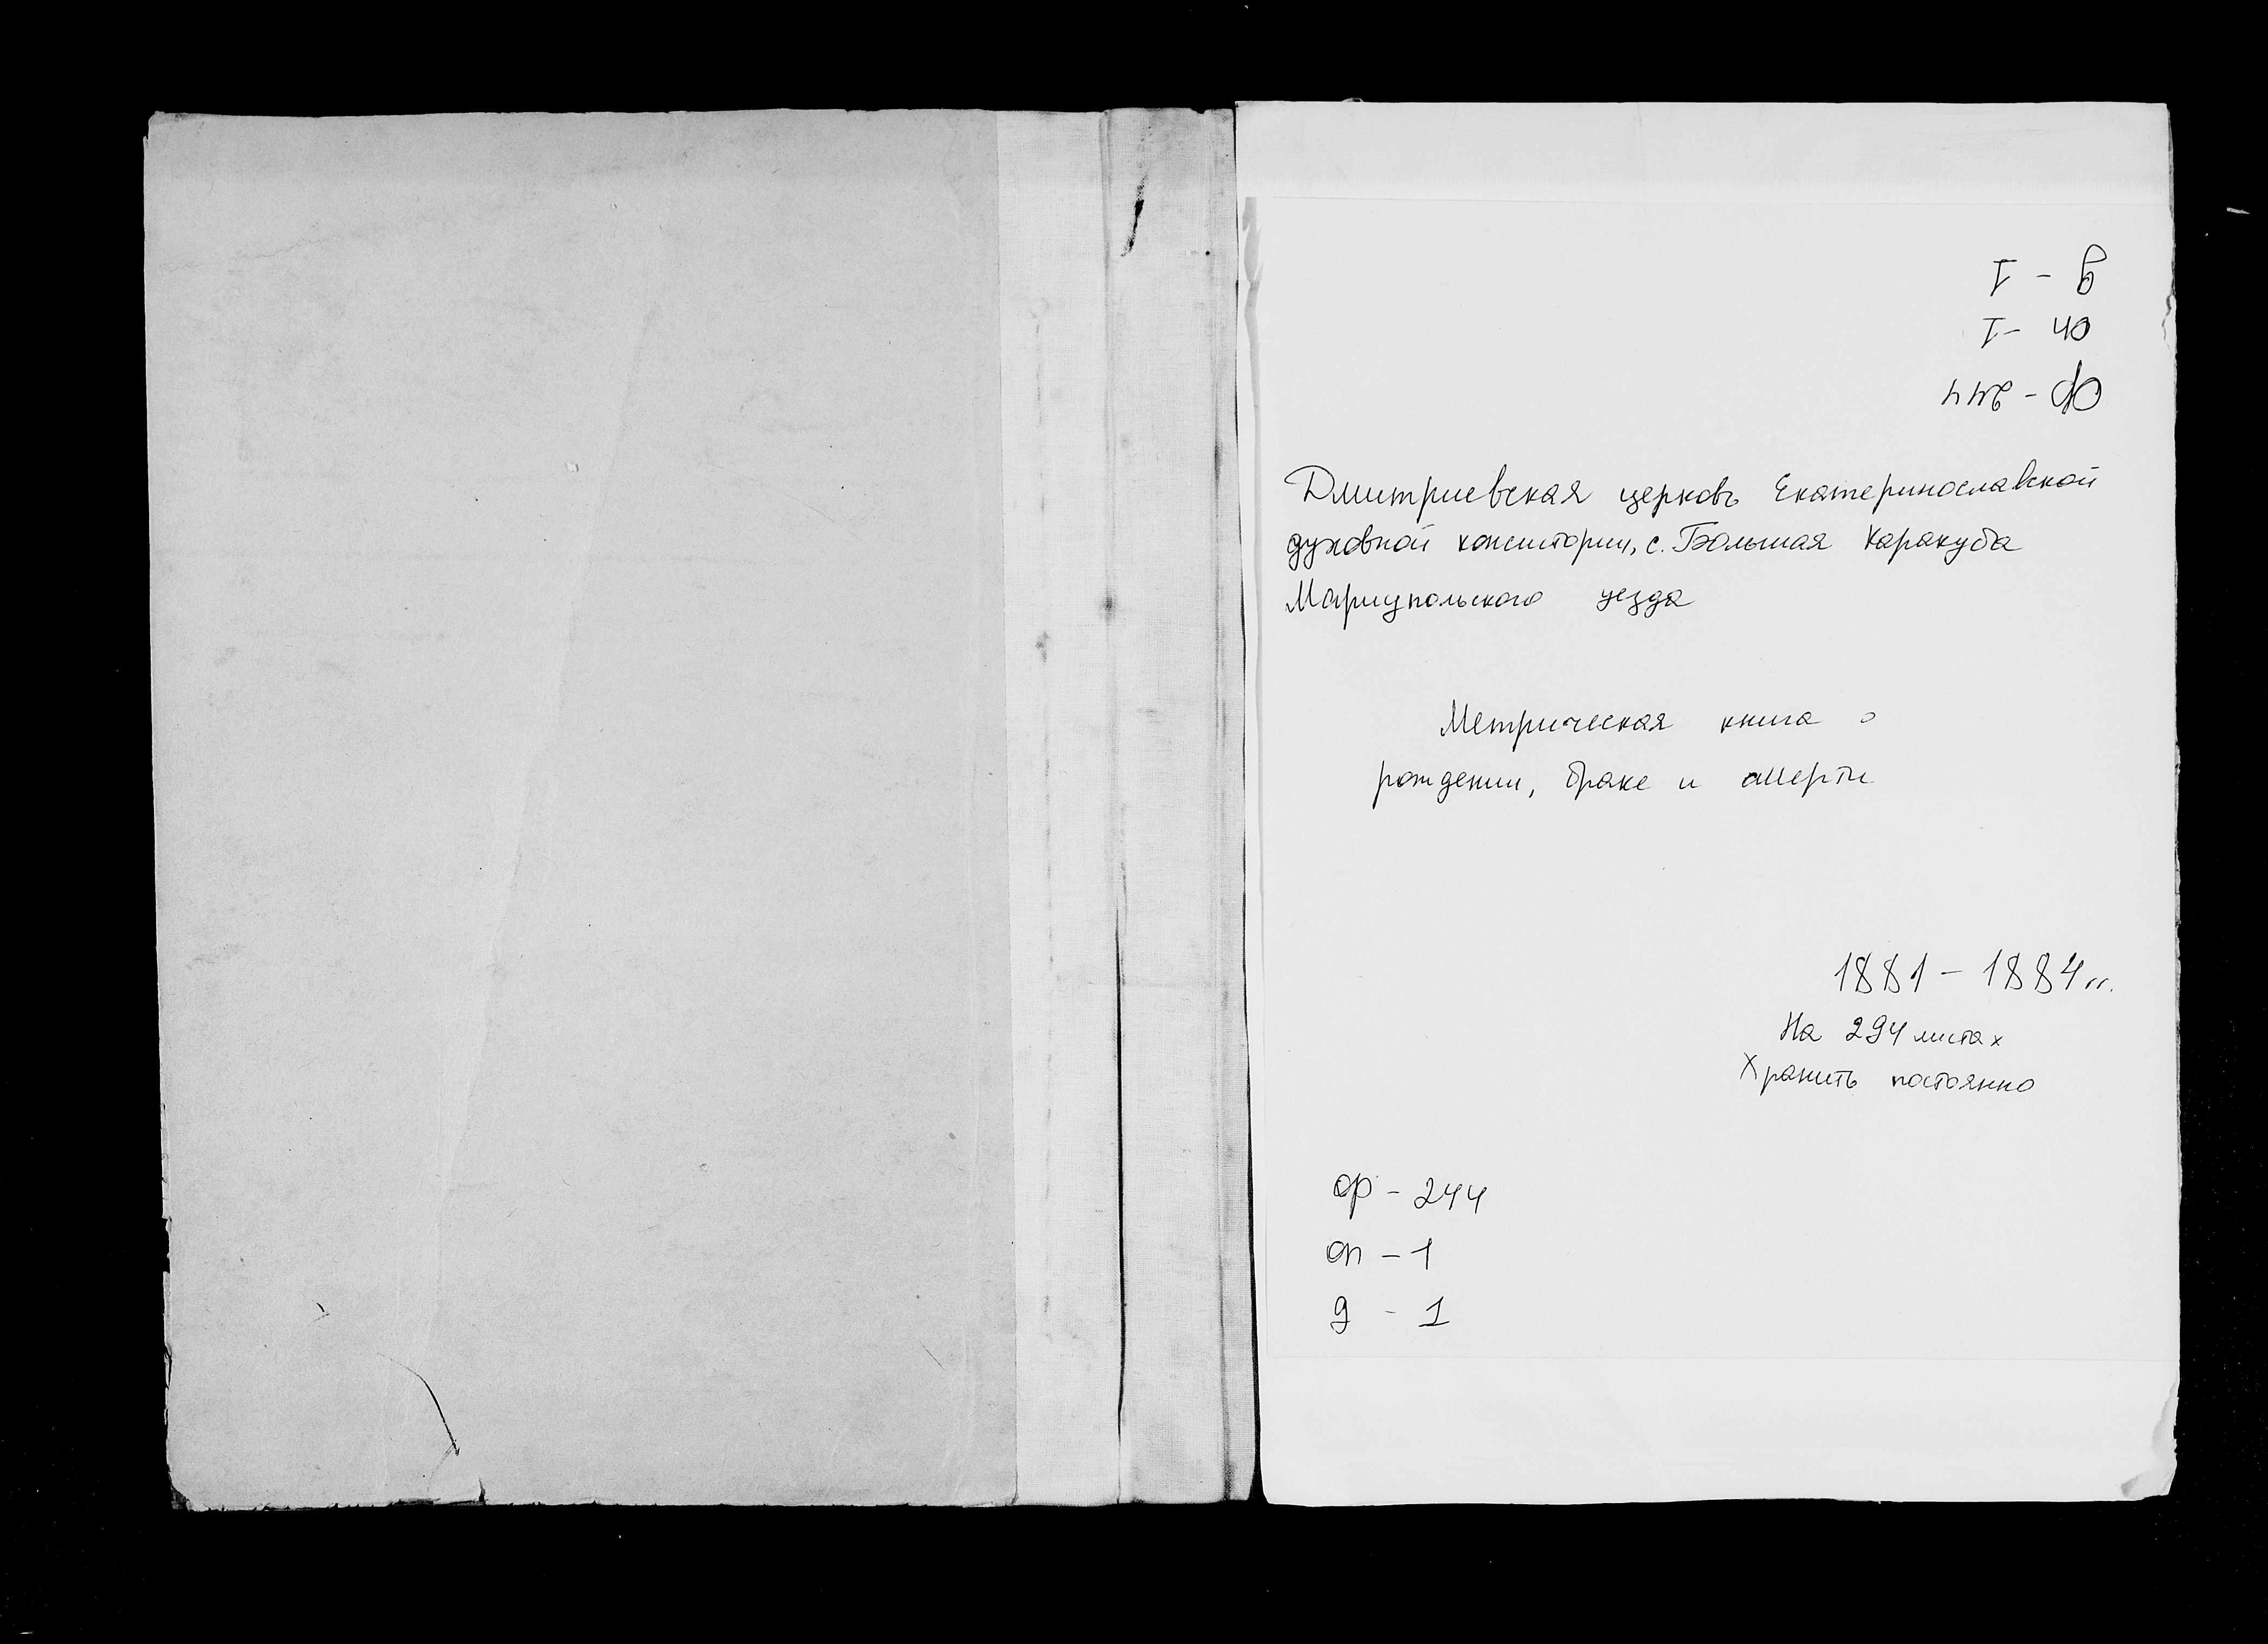 д - 1
оп - 1
ф - 244
Дмитриевская церковь Екатеринославской
духовной консистории, с. Большая Каракуба
Мариупольского уезда
Метрическая книга о
рождении, браке и смерти
1881 - 1884 гг.
На 294 листах
Хранить постоянно
ф - 244
оп - 1
д - 1